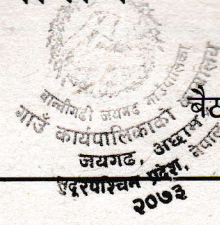 बान्नीगढी जयगढ गाउँपालिका
गाउँ कार्यपालिकाको कार्यालय
जयगढ, अछाम
सुदूरपश्चिम प्रदेश, नेपाल
२०७३